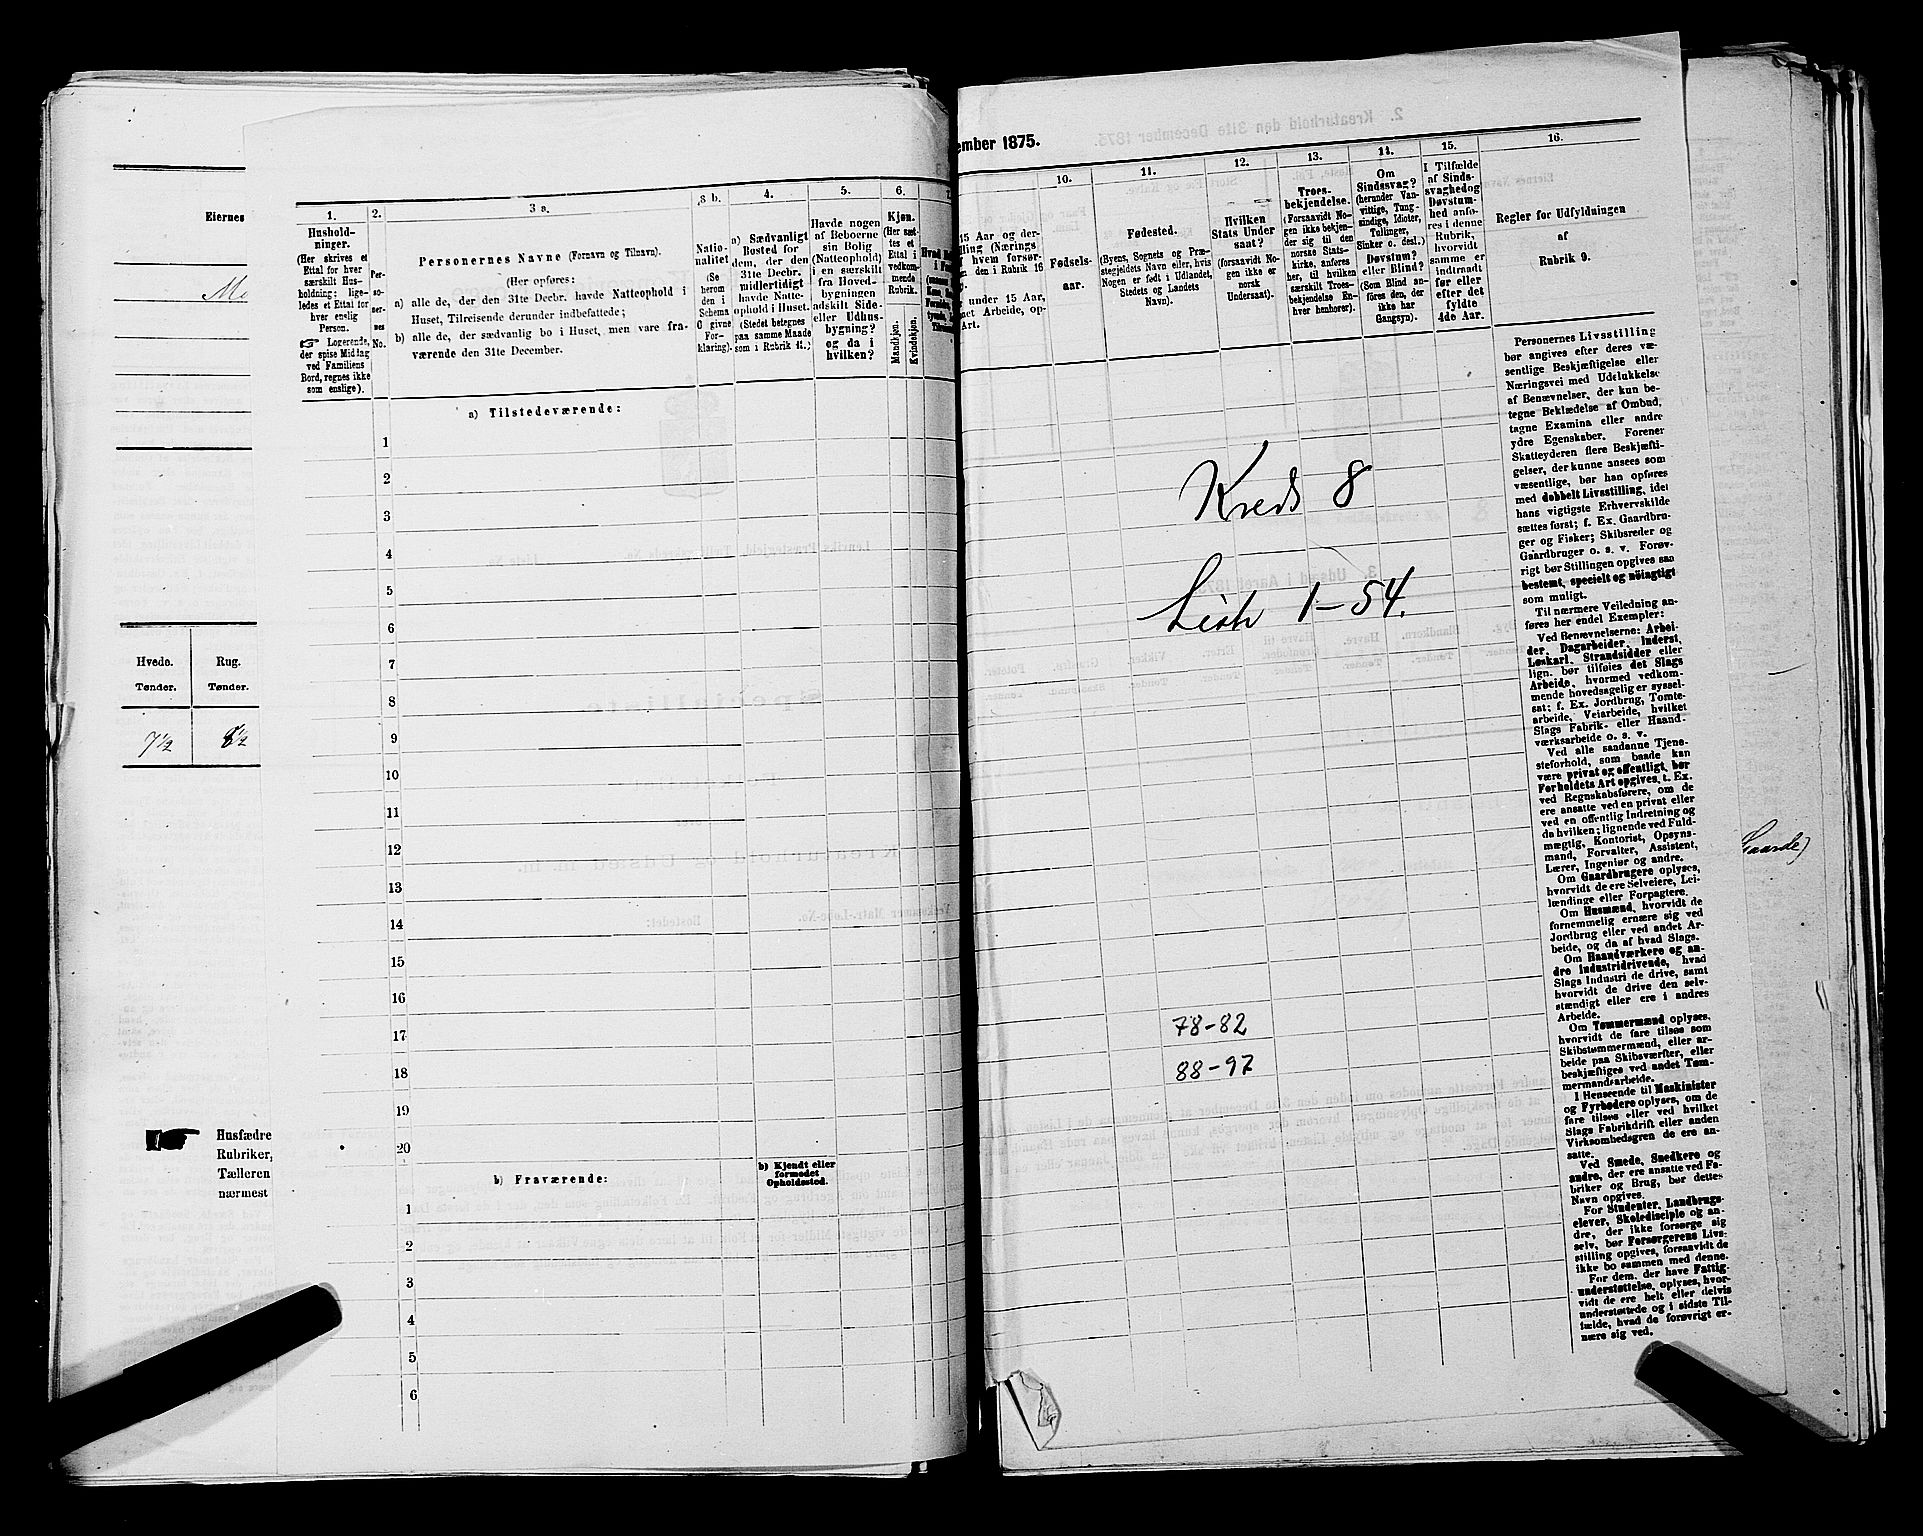 Eiernes
Mo
Hvede. Rug.
Tønder. Tønder.
7 1/2
Husfædre
Rubriker,
Tælleren
nærmest
1.
Hushold-
ninger.
(Her skrives et
Ettal for hver
særskilt Hus-
holdning; lige-
ledes et Ettal for
hver enslig
Person.
☞ Logerende,
der spise Middag
ved Familiens
Bord, regnes ikke
som enslige).
2.
Per-
so-
ner-
nes
No.
3 a.
Personernes Navne (Fornavn og Tilnavn).
(Her opføres:
a) alle de, der den 31te Decbr. havde Natteophold i
Huset, Tilreisende derunder indbefattede;
b) alle de, der sædvanlig bo i Huset, men vare fra-
værende den 31te December.
3 b.
Natio-
nalitet
(Se
herom
den i
Schema
O givne
For-
klaring).
4.
a) Sædvanligt
Bosted for
dem, der den
31te Decbr.
midlertidigt
havde Natte-
ophold i Huset.
(Stedet betegnes
paa samme Maade
som i Rubrik 11.)
5.
Havde nogen
af Beboerne
sin Bolig
(Natteophold)
i en særskilt
fra Hoved-
bygningen
adskilt Side-
eller Udhus-
bygning?
og da i
hvilken?
6.
Kjøn.
(Her sæt-
tes et
Ettal i
vedkom-
mende
Rubrik.
Mandkjøn.
Kvindekjøn.
a) Tilstedeværende:
1
2
3
4
5
6
7
8
9
10
11
12
13
14
15
16
17
18
19
20
b) Fraværende:
b) Kjendt eller
formodet
Opholdssted.
1
2
3
4
5
6
ember 1875.
15 Aar og der-
illing (Nærings
hvem forsør-
den i Rubrik 16
under 15 Aar,
net Arbeide, op-
Art.
10.
Fødsels-
aar.
11.
Fødested.
(Byens, Sognets og Præ-
stegjeldets Navn eller, hvis
Nogen er født i Udlandet,
Stedets og Landets
Navn).
12.
Hvilken
Stats Under
saat?
(forsaavidt No-
gen ikke er
norsk
Undersaat).
13.
Troes-
bekjendelse.
(Forsaavidt No-
gen ikke bekjen-
der sig til den
norske Stats-
kirke, anføres
her, til hvilken
særskilt Troes-
bekjendelse En-
hver henhører).
14.
Om
Sindssvag?
(herunder Van-
vittige, Tung-
sindige, Idioter,
Tullinger,
Sinker o. desl.)
Døvstum?
eller Blind?
(Som Blind an-
føres den, der
ikke har
Gangsyn).
15.
I Tilfælde
af Sinds-
svaghedog
Døvstum-
hed anfø-
res i denne
Rubrik,
hvorvidt
samme er
indtraadt
før eller
efter det
fyldte
4de Aar.
16.
Regler for Udfyldningen
af
Rubrik 9.
Personernes Livsstilling
bør angives efter deres væ-
sentlige Beskjæftigelse eller
Næringsvei med Udelukkelse
af Benævnelser, der kun be-
tegne Beklædelse af Ombud,
tagne Examina eller andre
ydre Egenskaber. Forener
Skatteyderen flere Beskjæfti-
gelser, der kunne ansees som
væsentlige, bør han opføres
med dobbelt Livsstilling, idet
hans vigtigste Erhvervskilde
sættes først; f. Ex. Gaardbru-
ger og Fisker; Skibsreder og
Gaardbruger o. s. v. Forøv-
rigt bør Stillingen opgives saa
bestemt, specielt og nöiagtigt
som muligt.
Til nærmere Veiledning an-
føres her endel Exempler:
Ved Benævnelserne: Arbei-
der, Dagarbeider, Inderst,
Løskarl, Strandsidder eller
lign. bør tilføies det Slags
Arbeide, hvormed vedkom-
mende hovedsagelig er syssel-
sat; f. Ex. Jordbrug, Tomte-
arbeide, Veiarbeide, hvilket
Slags Fabrik- eller Haand-
værksarbeide o. s. v.
Ved alle saadanne Tjene-
steforhold, som baade kan
være privat og offentligt, bør
Forholdets Art opgives, t. Ex.
ved Regnskabsførere, om de
ere ansatte ved en privat eller
ved en offentlig Indretning og
da hvilken; lignende ved Fuld-
mægtig, Kontorist, Opsyns-
mand, Forvalter, Assistent,
Lærer, Ingeniør og andre.
Om Gaardbrugere oplyses,
hvorvidt de ere Selveiere, Lei-
lændinge eller Forpagtere.
Om Husmænd, hvorvidt de
fornemmelig ernære sig ved
Jordbrug eller ved andet Ar-
beide, og da af hvad Slags.
Om Haandværkere og an-
dre Industridrivende, hvad
Slags Industri de drive, samt
hvorvidt de drive den selv-
stændigt eller ere i andres
Arbeide.
Om Tømmermænd oplyses,
hvorvidt de fare tilsøs som
Skibstømmermænd, eller ar-
beide paa Skibsværfter, eller
beskjæftiges ved andet Tøm-
mermandsarbeide.
I Henseende til Maskinister
og Fyrbødere oplyses, om de
fare tilsøs eller ved hvilket
Slags Fabrikdrift eller anden
Virksomhedsgren de ere an-
satte.
Ved Smede, Snedkere og
andre, der ere ansatte ved Fa-
briker og Brug, bør dettes
Navn opgives.
For Studenter, Landbrugs-
elever, Skoledisciple og an-
dre, der ikke forsørge sig
selv, bør Forsørgerens Livs-
stilling opgives, forsaavidt de
ikke bo sammen med denne.
For dem, der have Fattig-
understøttelse, oplyses, hvor-
vidt de ere helt eller delvis
understøttede og i sidste Til-
fælde, hvad de forøvrigt er-
nære sig ved.
Kreds 8
Liste 1-54.
78-82
88-97
Gaarde)